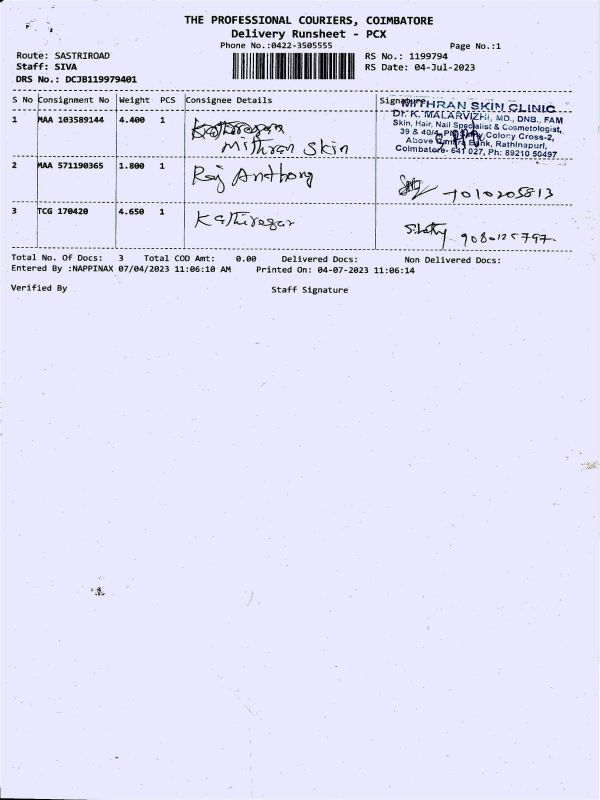 THE PROFESSIONAL COURIERS, COIMBATORE
Delivery Runsheet - PCX
Phone No.:0422-3505555
Page No.:1
Route: SASTRIROAD
RS No.: 1199794
Staff: SIVA
RS Date: 04-Jul-2023
DRS No.: DCJB119979401
S No Consignment No Weight PCS Consignee Details Signature
1 MAA 103589144 4.400 1
Mithran Skin
MITHRAN SKIN CLINIC
Dr. K. MALARVIZHI, MD., DNB., FAM
Skin, Hair, Nail Specialist & Cosmetologist,
39 & 40/4, Colony Cross-2,
Above Canara Bank, Rathinapuri,
Coimbatore- 641 027, Ph: 89210 50497
2 MAA 571190365 1.800 1 Raj Anthony
7010205813
3 TCG 170420 4.650 1 Kathiresan
9080125797.
Total No. Of Docs: 3 Total COD Amt: 0.00 Delivered Docs: Non Delivered Docs:
Entered By :NAPPINAX 07/04/2023 11:06:10 AM Printed On: 04-07-2023 11:06:14
Verified By Staff Signature